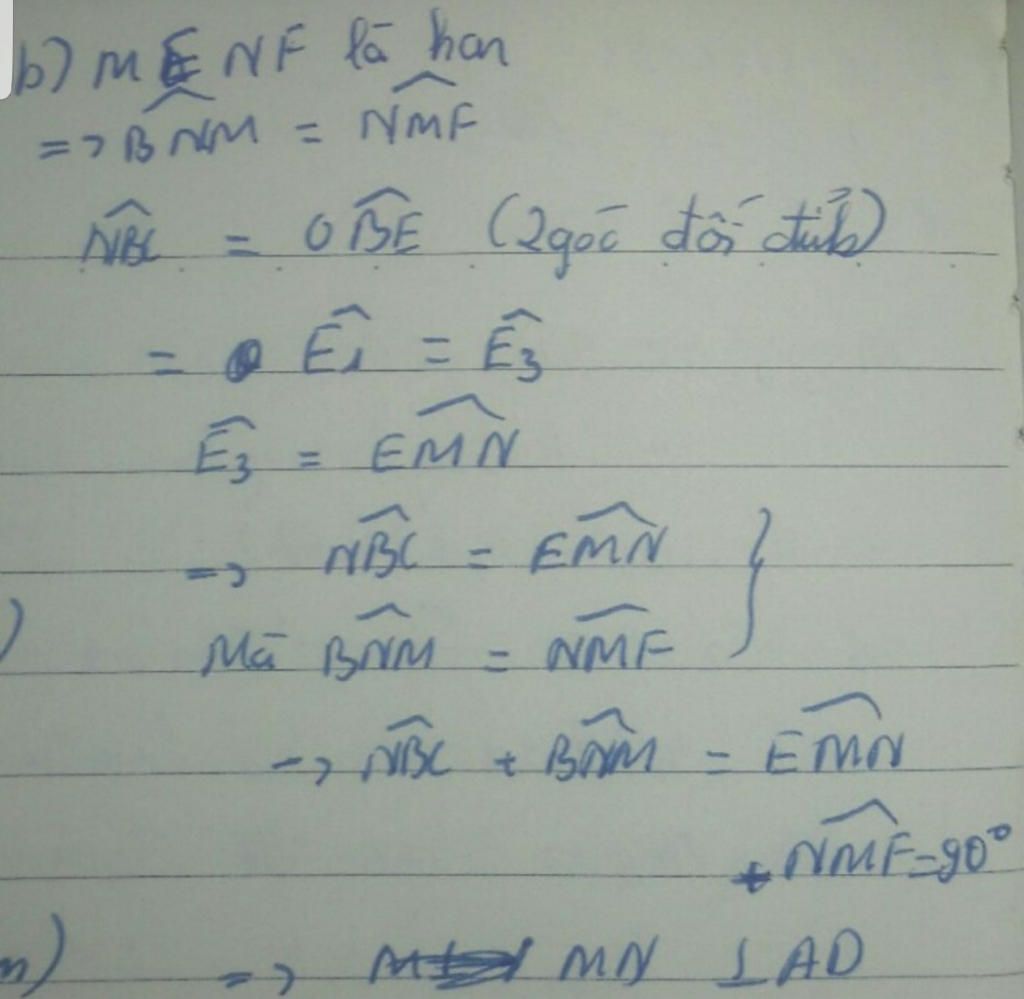 b) MENF là hcn
=> \widehat{BNM} = \widehat{NMF}
\widehat{NBC} = \widehat{OBE} (2 góc đối đỉnh)
= \widehat{E_1} = \widehat{E_3}
\widehat{E_3} = \widehat{EMN}
=> \widehat{NBC} = \widehat{EMN} }
) Mà \widehat{BNM} = \widehat{NMF}
-> \widehat{NBC} + \widehat{BNM} = \widehat{EMN}
+ \widehat{NMF} = 90°
) => MN ⊥ AD